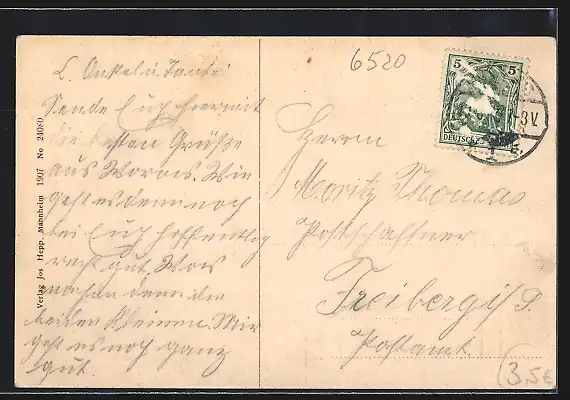 L. Onkel u. Tante!
Sende Euch hiermit
die besten Grüße
aus Worms. Wie
geht es denn noch
bei Euch hoffentlig
recht gut. Was
machen denn die
beiden Kleinen. Mir
geht es noch ganz
gut.
Verlag Jos. Hepp, Mannheim 1907 No 24080
6520
5 5
DEUTSCHES
-3V.
Herrn
Moritz Thomas
Postschaffner
Freiberg i/S.
Postamt
3.5€